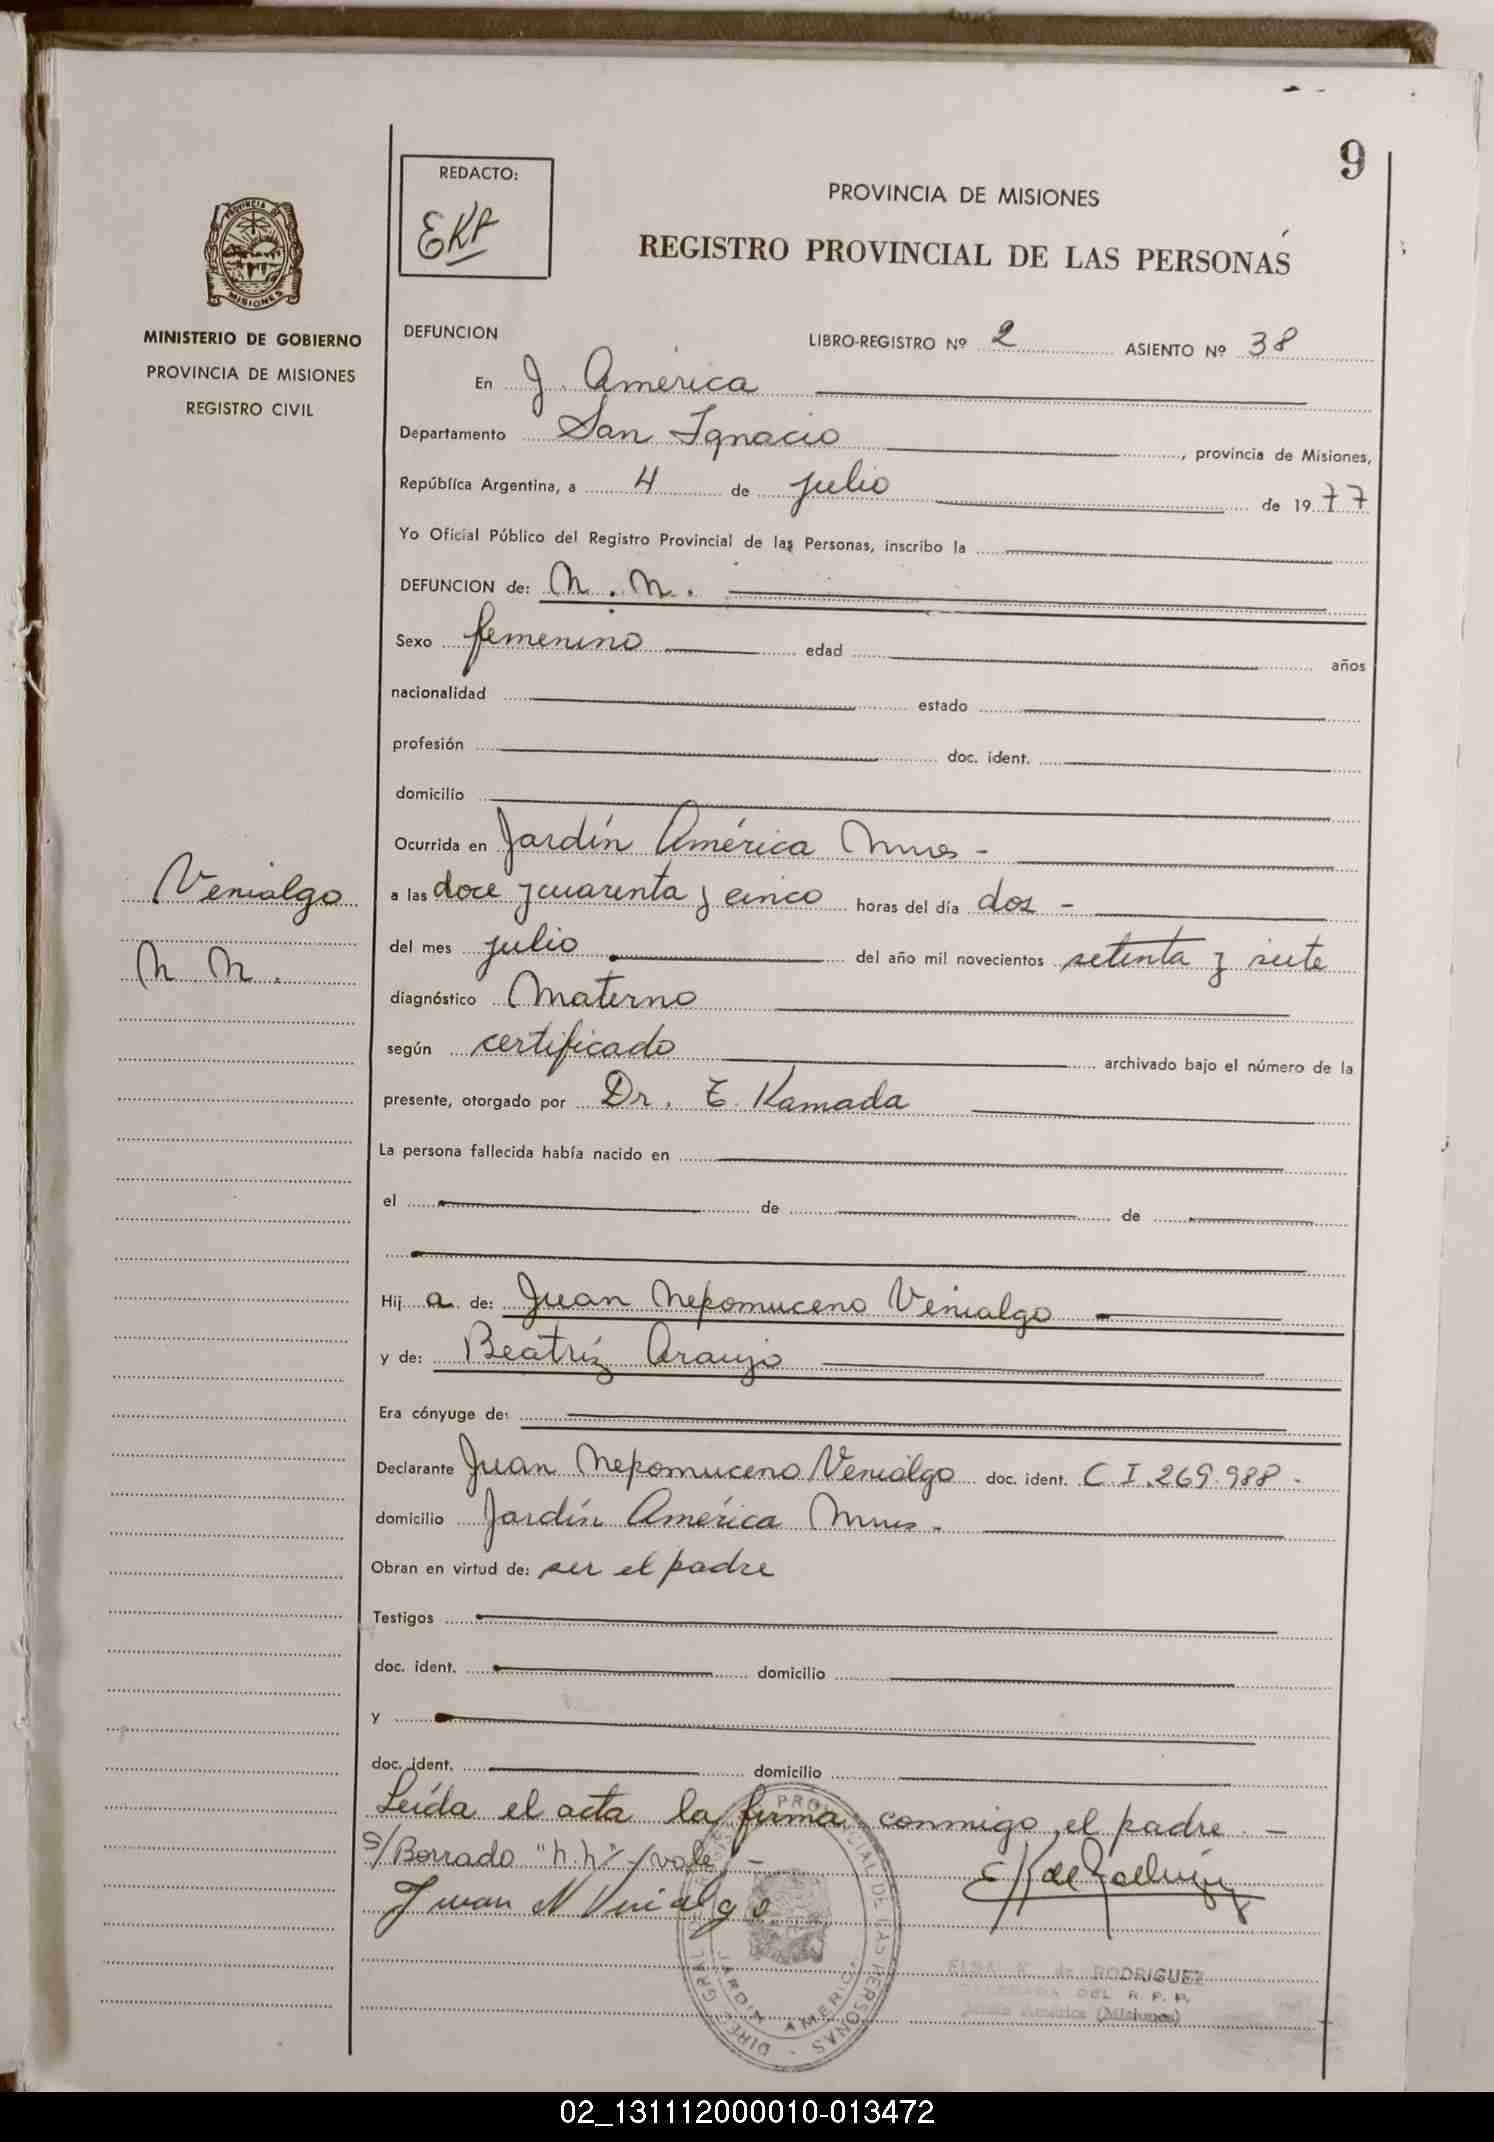 9
REDACTO:
EKR
PROVINCIA DE MISIONES
REGISTRO PROVINCIAL DE LAS PERSONAS
PROVINCIA DE
MISIONES
MINISTERIO DE GOBIERNO
PROVINCIA DE MISIONES
REGISTRO CIVIL
DEFUNCION LIBRO-REGISTRO Nº 2 ASIENTO Nº 38
En J. América
Departamento San Ignacio, provincia de Misiones,
República Argentina, a 4 de julio de 1977
Yo Oficial Público del Registro Provincial de las Personas, inscribo la
DEFUNCION de: N. N.
Sexo femenino edad años
nacionalidad estado
profesión doc. ident.
domicilio
Ocurrida en Jardín América Mnes -
Venialgo
N N.
a las doce y cuarenta y cinco horas del día dos -
del mes julio del año mil novecientos setenta y siete
diagnóstico Materno
según certificado archivado bajo el número de la
presente, otorgado por Dr. T. Kamada
La persona fallecida había nacido en
el de de
Hija de: Juan Nepomuceno Venialgo
y de: Beatríz Araujo
Era cónyuge de:
Declarante Juan Nepomuceno Venialgo doc. ident. C.I.269.988-
domicilio Jardín América Mnes.
Obran en virtud de: ser el padre
Testigos
doc. ident. domicilio
y
doc. ident. domicilio
Leída el acta la firma conmigo el padre. -
s/Borrado "n.n" /vale/ -
Juan N Venialgo
ELSA K. de RODRIGUEZ
DELEGADA DEL R. P. P.
Jardín América (Misiones)
DIRE. GRAL. REGIS. PROVINCIAL DE LAS PERSONAS -
JARDIN AMERICA
02_131112000010-013472